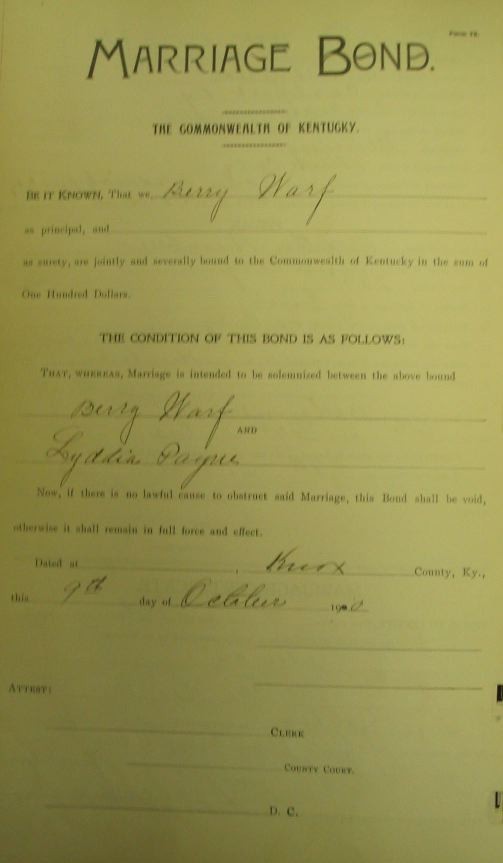 MARRIAGE BOND.
THE COMMONWEALTH OF KENTUCKY.
BE IT KNOWN, That we, Berry Warf
as principal, and
as surety, are jointly and severally bound to the Commonwealth of Kentucky in the sum of
One Hundred Dollars.
THE CONDITION OF THIS BOND IS AS FOLLOWS:
THAT, WHEREAS, Marriage is intended to be solemnized between the above bound
Berry Warf
AND
Lyddia Payne
Now, if there is no lawful cause to obstruct said Marriage, this Bond shall be void,
otherwise it shall remain in full force and effect.
Dated at , Knox County, Ky.,
this 9th day of October 1900
ATTEST:
CLERK
COUNTY COURT.
D. C.